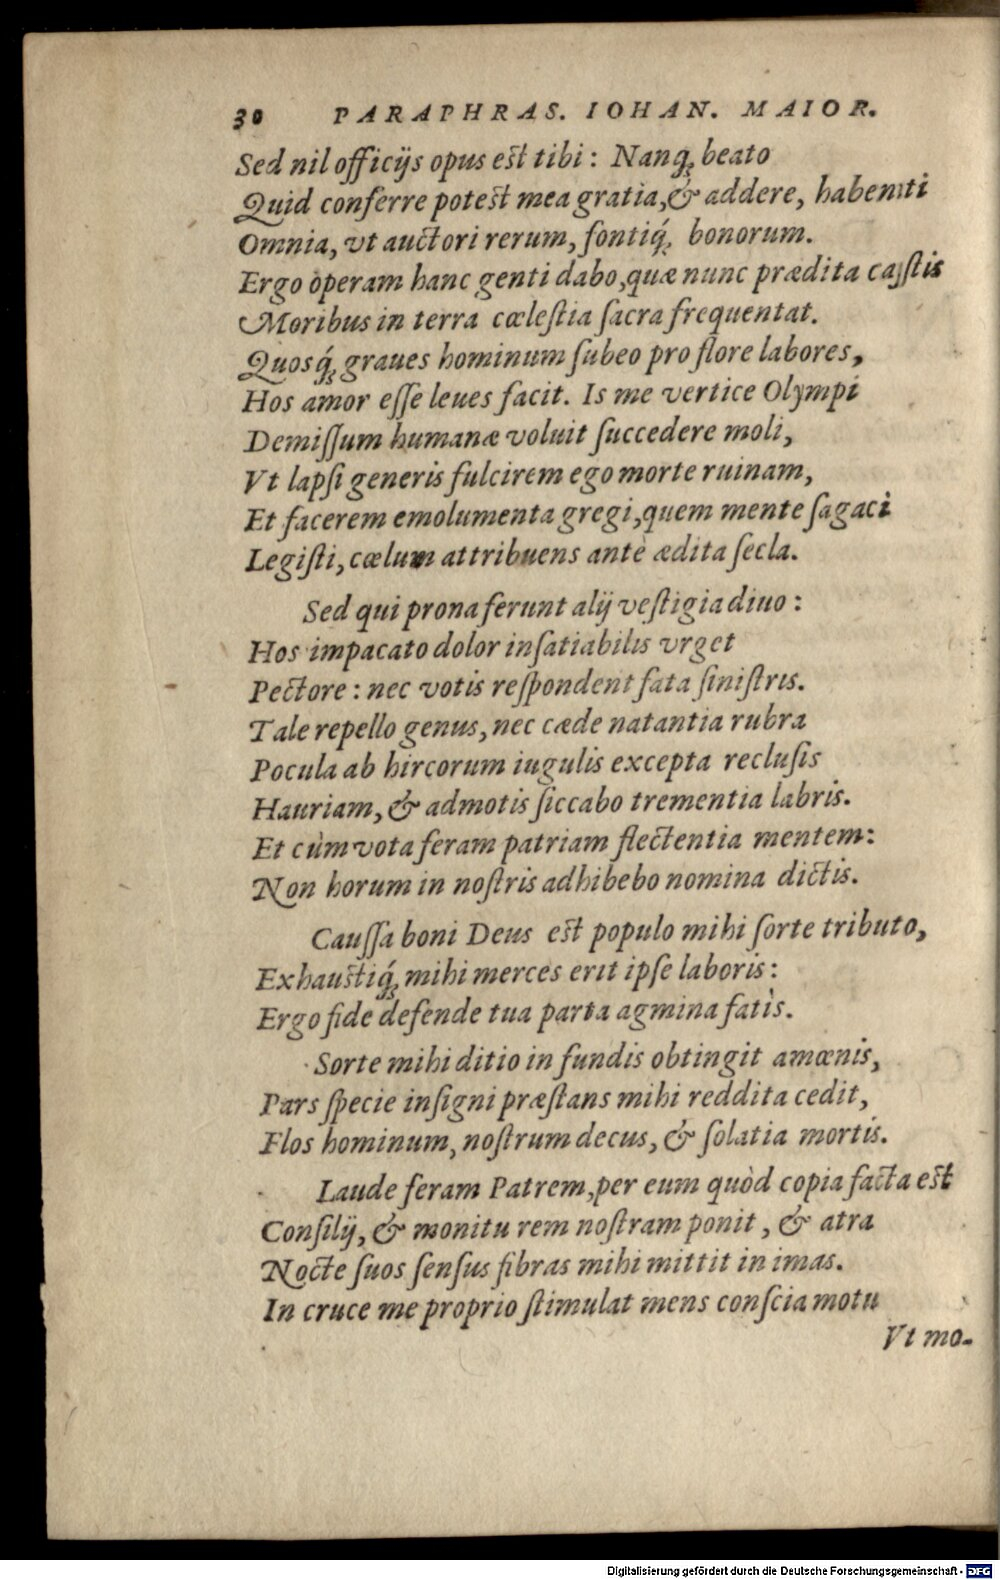 30 PARAPHRAS. IOHAN. MAIOR.
Sed nil officijs opus est tibi: Nanq́ꝫ beato
Quid conferre potest mea gratia, & addere, habenti
Omnia, vt auctori rerum, fontiq́ꝫ bonorum.
Ergo operam hanc genti dabo, quæ nunc prædita castis
Moribus in terra cœleſtia ſacra frequentat.
Quosq́ꝫ graues hominum ſubeo pro flore labores,
Hos amor eſſe leues facit. Is me vertice Olympi
Demiſſum humanæ voluit ſuccedere moli,
Vt lapſi generis fulcirem ego morte ruinam,
Et facerem emolumenta gregi, quem mente ſagaci
Legiſti, cœlum attribuens ante ædita ſecla.
Sed qui prona ferunt alij veſtigia diuo:
Hos impacato dolor inſatiabilis vrget
Pectore: nec votis reſpondent fata ſiniſtris.
Tale repello genus, nec cæde natantia rubra
Pocula ab hircorum iugulis excepta recluſis
Hauriam, & admotis ſiccabo trementia labris.
Et cùm vota feram patriam flectentia mentem:
Non horum in noſtris adhibebo nomina dictis.
Cauſſa boni Deus est populo mihi ſorte tributo,
Exhaustiq́ꝫ mihi merces erit ipſe laboris:
Ergo fide defende tua parta agmina fatis.
Sorte mihi ditio in fundis obtingit amœnis,
Pars ſpecie inſigni præſtans mihi reddita cedit,
Flos hominum, noſtrum decus, & ſolatia mortis.
Laude feram Patrem, per eum quòd copia facta est
Conſilij, & monitu rem noſtram ponit, & atra
Nocte ſuos ſenſus fibras mihi mittit in imas.
In cruce me proprio ſtimulat mens conſcia motu
Vt mo-
Digitalisierung gefördert durch die Deutsche Forschungsgemeinschaft - DFG